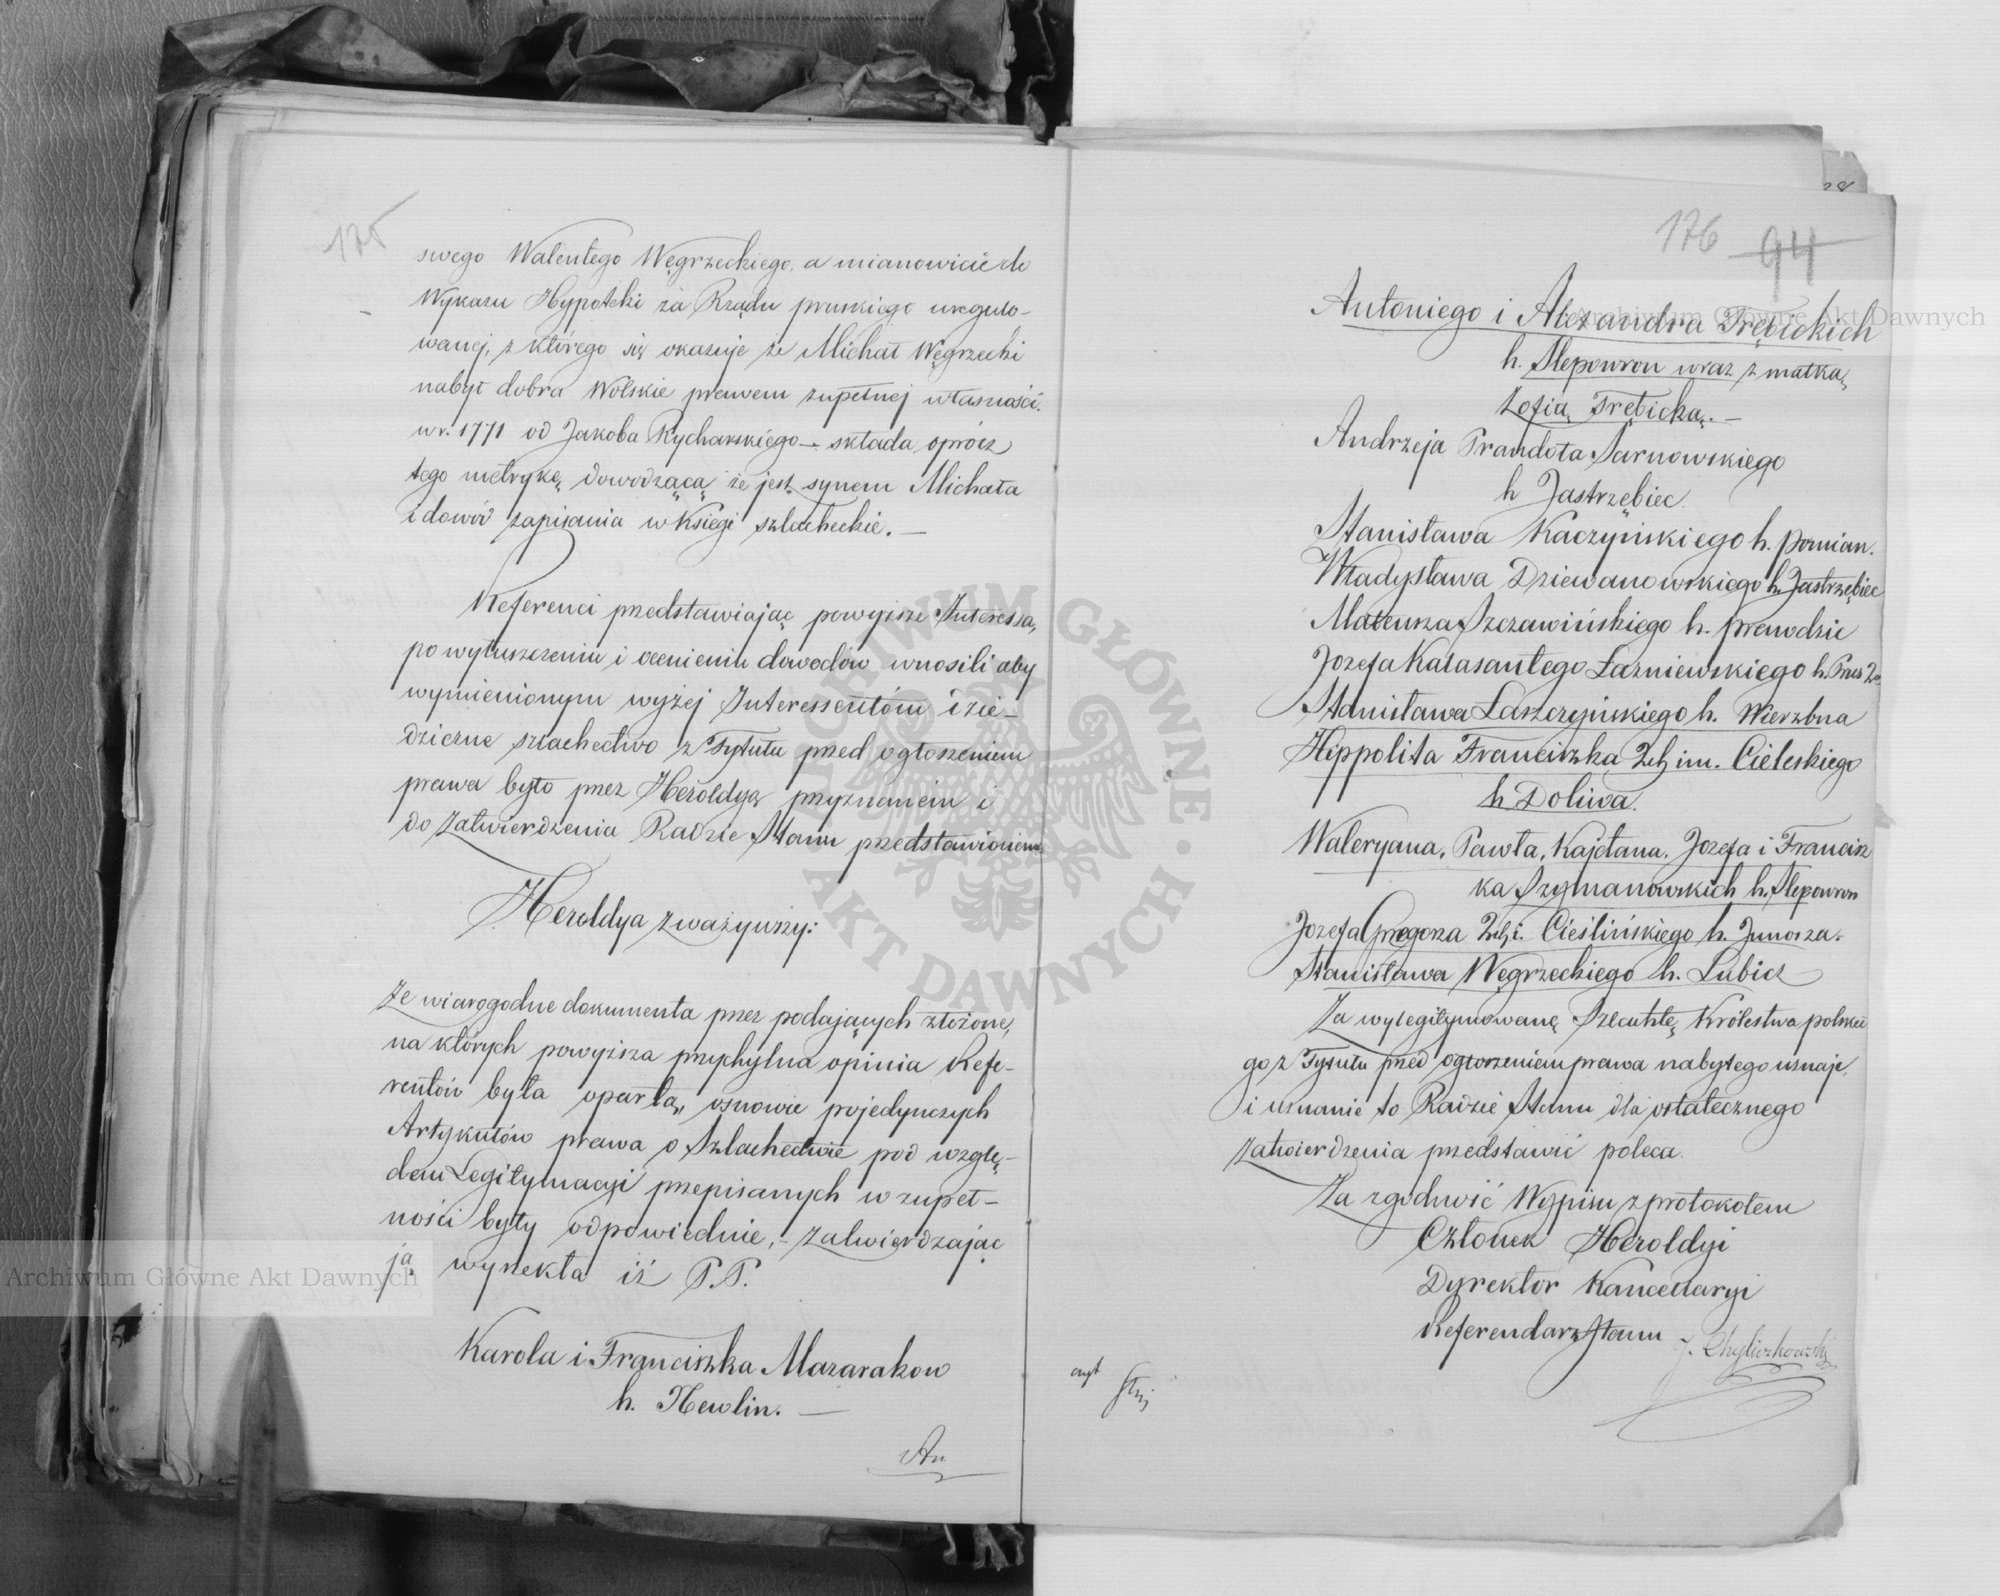 175
swego Walentego Węgrzeckiego, a mianowicie do
Wykazu Hypoteki za Rządu pruskiego uregulo-
wanej, z którego się okazuje że Michał Węgrzecki
nabył dobra Wolskie prawem zupełnej własności
w r. 1771 od Jakoba Rycharskiego – składa oprócz
tego metrykę dowodzącą że jest synem Michała
i dowód zapisania w Księgi szlacheckie. –
Referenci przedstawiając powyższe Interessa,
po wyłuszczeniu i ocenieniu dowodów wnosili aby
wymienionym wyżej Interessentom dzie-
dziczne szlachectwo z Tytułu przed ogłoszeniem
prawa było przez Heroldyą przyznanem i
do zatwierdzenia Radzie Stanu przedstawionem
Heroldya zważywszy:
Że wiarogodne dokumenta przez podających złożone,
na których powyższa przychylna opinia Refe-
rentów była opartą, osnowie pojedynczych
Artykułów prawa o Szlachectwie pod wzglę-
dem Legitymacyi przepisanych w zupeł-
ności były odpowiednie, – zatwierdzając
ją wyrzekła iż P.P.
Karola i Franciszka Mazarakow
h. Newlin. –
An
176 94
Antoniego i Alexandra Trębickich
h. Slepowron wraz z matką
Zofią Trębicką. –
Andrzeja Prandota Sarnowskiego
h Jastrzębiec
Stanisława Kaczyńskiego h. Pomian.
Władysława Dziewanowskiego h. Jastrzębiec
Mateusza Szczawińskiego h. Prawdzic
Jozefa Kalasantego Łazniewskiego h. Prus 2o
Stanisława Łaszczyńskiego h. Wierzbna
Hippolita Franciszka 2ch im. Cieleskiego
h Doliwa.
Waleryana, Pawła, Kajetana, Jozefa i Francisz
ka Szymanowskich h. Slepowron
Jozefa Grzegorza 2ch i. Cieślińskiego h. Junosza.
Stanisława Węgrzeckiego h. Lubicz
Za wylegitymowaną Szlachtę Królestwa polskie
go z Tytułu przed ogłoszeniem prawa nabytego uznaje,
i uznanie to Radzie Stanu dla ostatecznego
zatwierdzenia przedstawić poleca.
Za zgodność Wypisu z protokołem
Członek Heroldyi
Dyrektor Kancellaryi
Referendarz Stanu J. Chyliczkowski
czyt
Archiwum Główne Akt Dawnych
Archiwum Główne Akt Dawnych
ARCHIWUM GŁÓWNE · AKT DAWNYCH ·